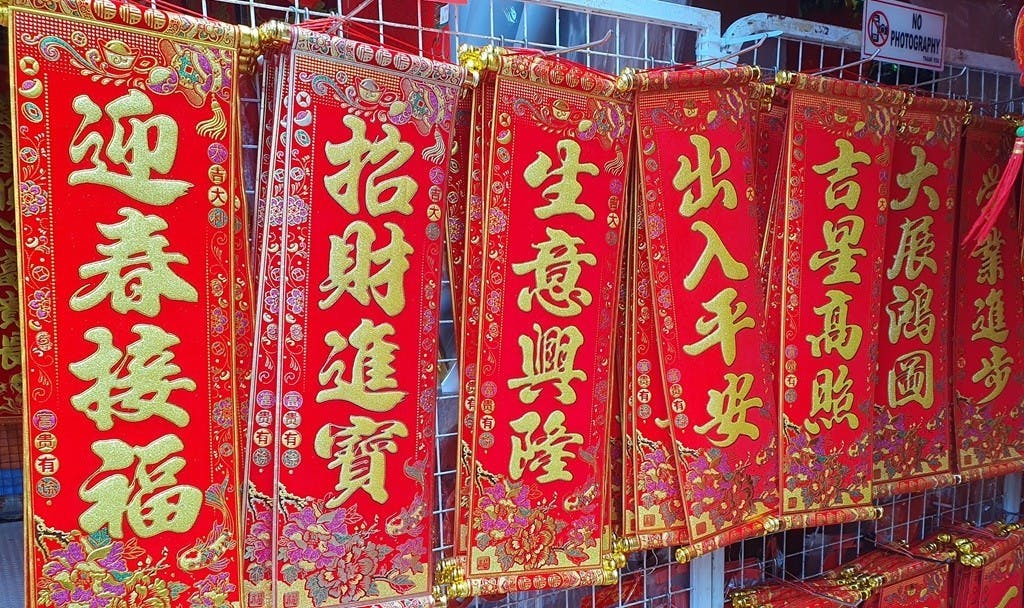 迎春接福
招財進寶
生意興隆
出入平安
吉星高照
大展鴻圖
業進步
NO
PHOTOGRAPHY
THANK YOU
大吉大利
富贵有余